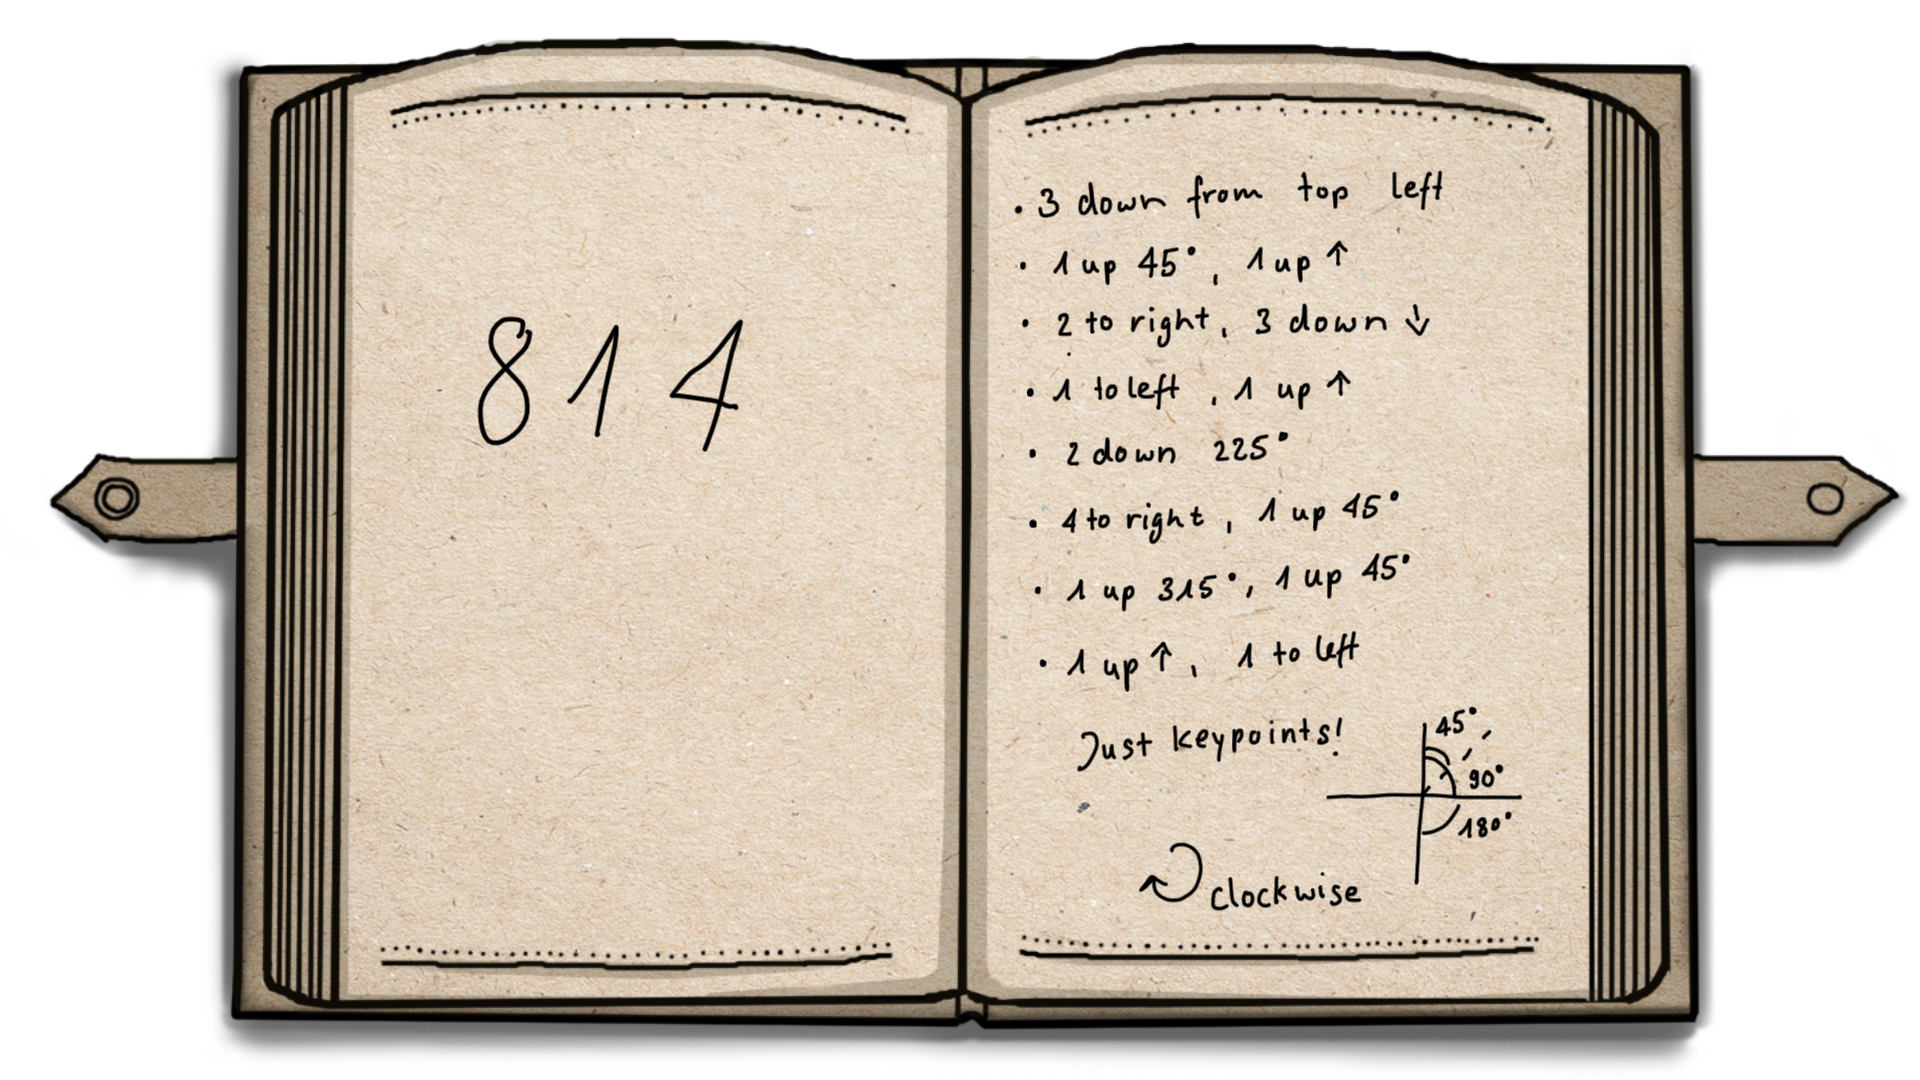 814
• 3 down from top left
• 1 up 45°, 1 up ↑
• 2 to right, 3 down ↓
• 1 to left, 1 up ↑
• 2 down 225°
• 4 to right, 1 up 45°
• 1 up 315°, 1 up 45°
• 1 up ↑, 1 to left
Just keypoints!
45°
90°
180°
clockwise